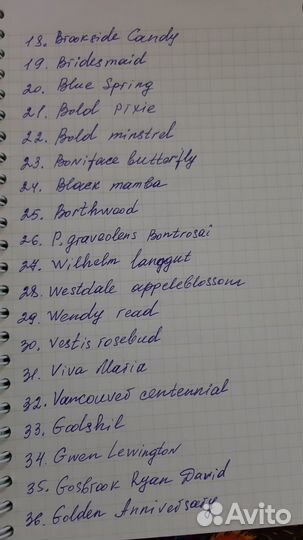 18. Brookside Candy
19. Bridesmaid
20. Blue Spring
21. Bold Pixie
22. Bold minstrel
23. Boniface butterfly
24. Black mamba
25. Borthwood
26. P. graveolens Bontrosai
27. Wilhelm langgut
28. Westdale appeleblossom
29. Wendy read
30. Vestis rosebud
31. Viva Maria
32. Vancouver centennial
33. Godshil
34. Gwen Lewington
35. Gosbrook Ryan David
36. Golden Anniversary
Avito